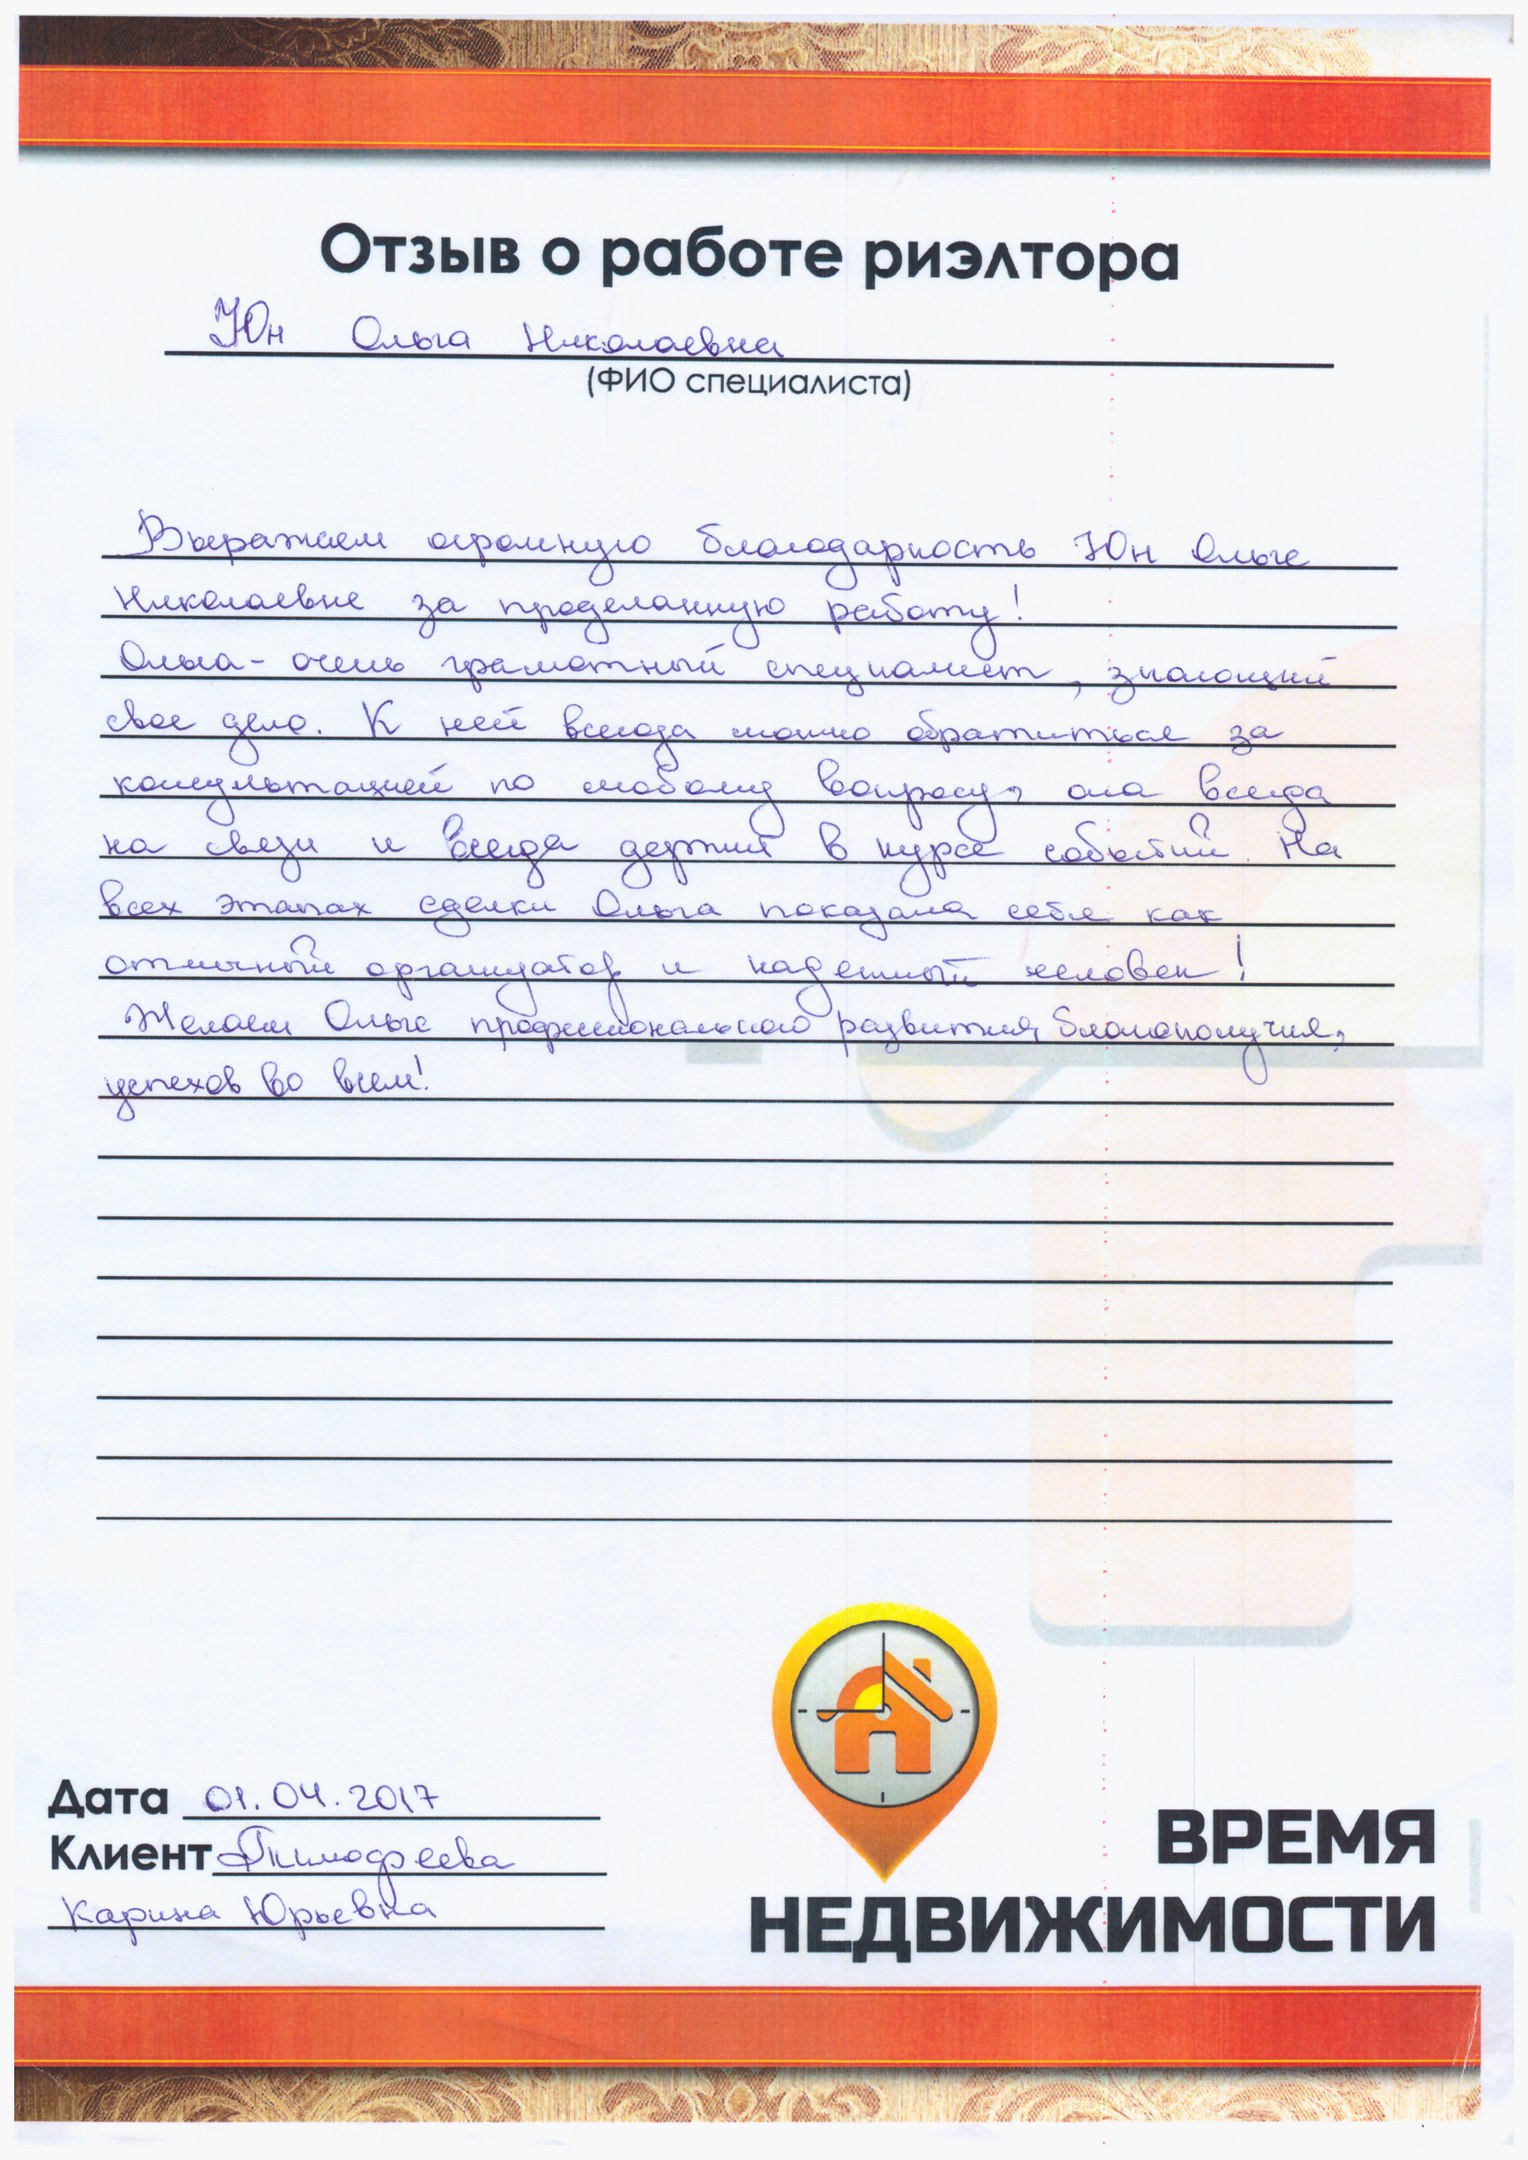 Отзыв о работе риэлтора
Юн Ольга Николаевна
(ФИО специалиста)
Выражаем огромную благодарность Юн Ольге
Николаевне за проделанную работу!
Ольга - очень грамотный специалист, знающий
свое дело. К ней всегда можно обратиться за
консультацией по любому вопросу, она всегда
на связи и всегда держит в курсе событий. На
всех этапах сделки Ольга показала себя как
отличный организатор и надежный человек!
Желаем Ольге профессионального развития, благополучия,
успехов во всем!
Дата 01.04.2017
Клиент Тимофеева
Карина Юрьевна
ВРЕМЯ
НЕДВИЖИМОСТИ